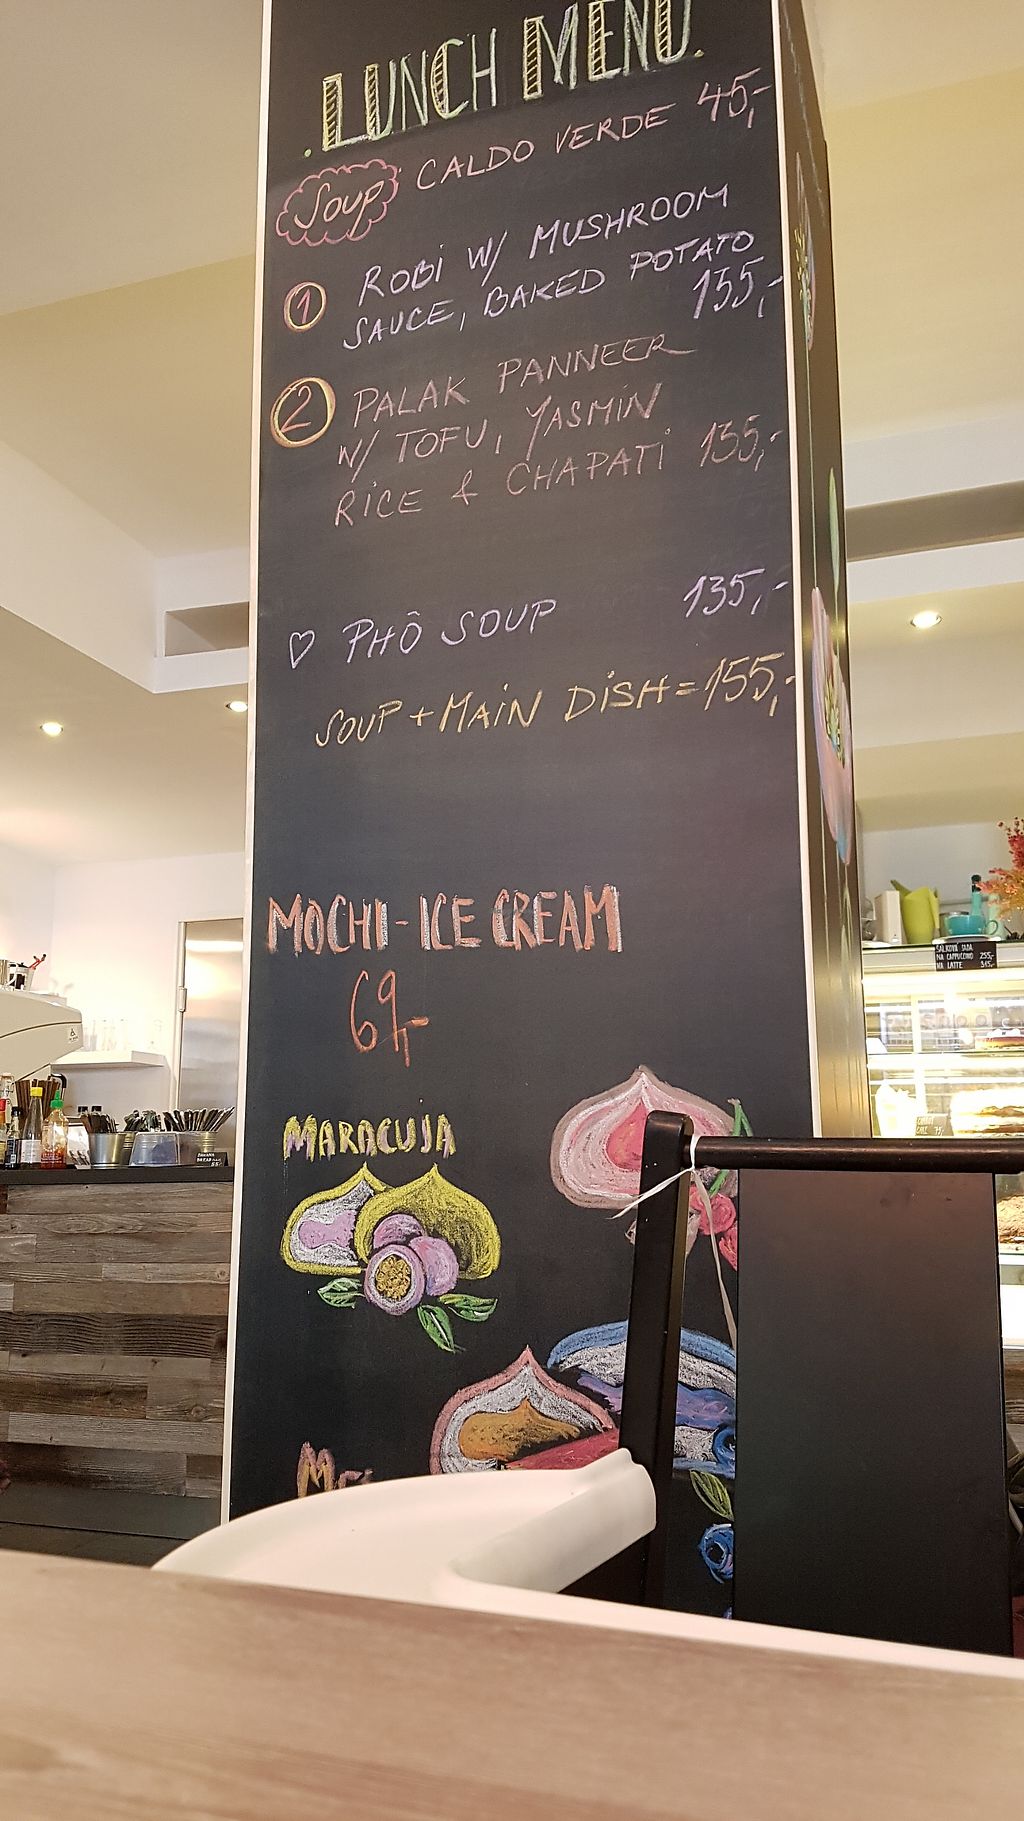 .LUNCH MENU.
Soup CALDO VERDE 45,-
1 ROBI W/ MUSHROOM
SAUCE, BAKED POTATO
135,-
2 PALAK PANNEER
W/ TOFU, YASMIN
RICE & CHAPATI 135,-
♡ PHÔ SOUP 135,-
SOUP + MAIN DISH = 155,-
MOCHI-ICE CREAM
69,-
MARACUJA
ŠÁLKOVÁ SADA
NA CAPPUCCINO 255,-
NA LATTE 315,-
BANANA
BREAD
55